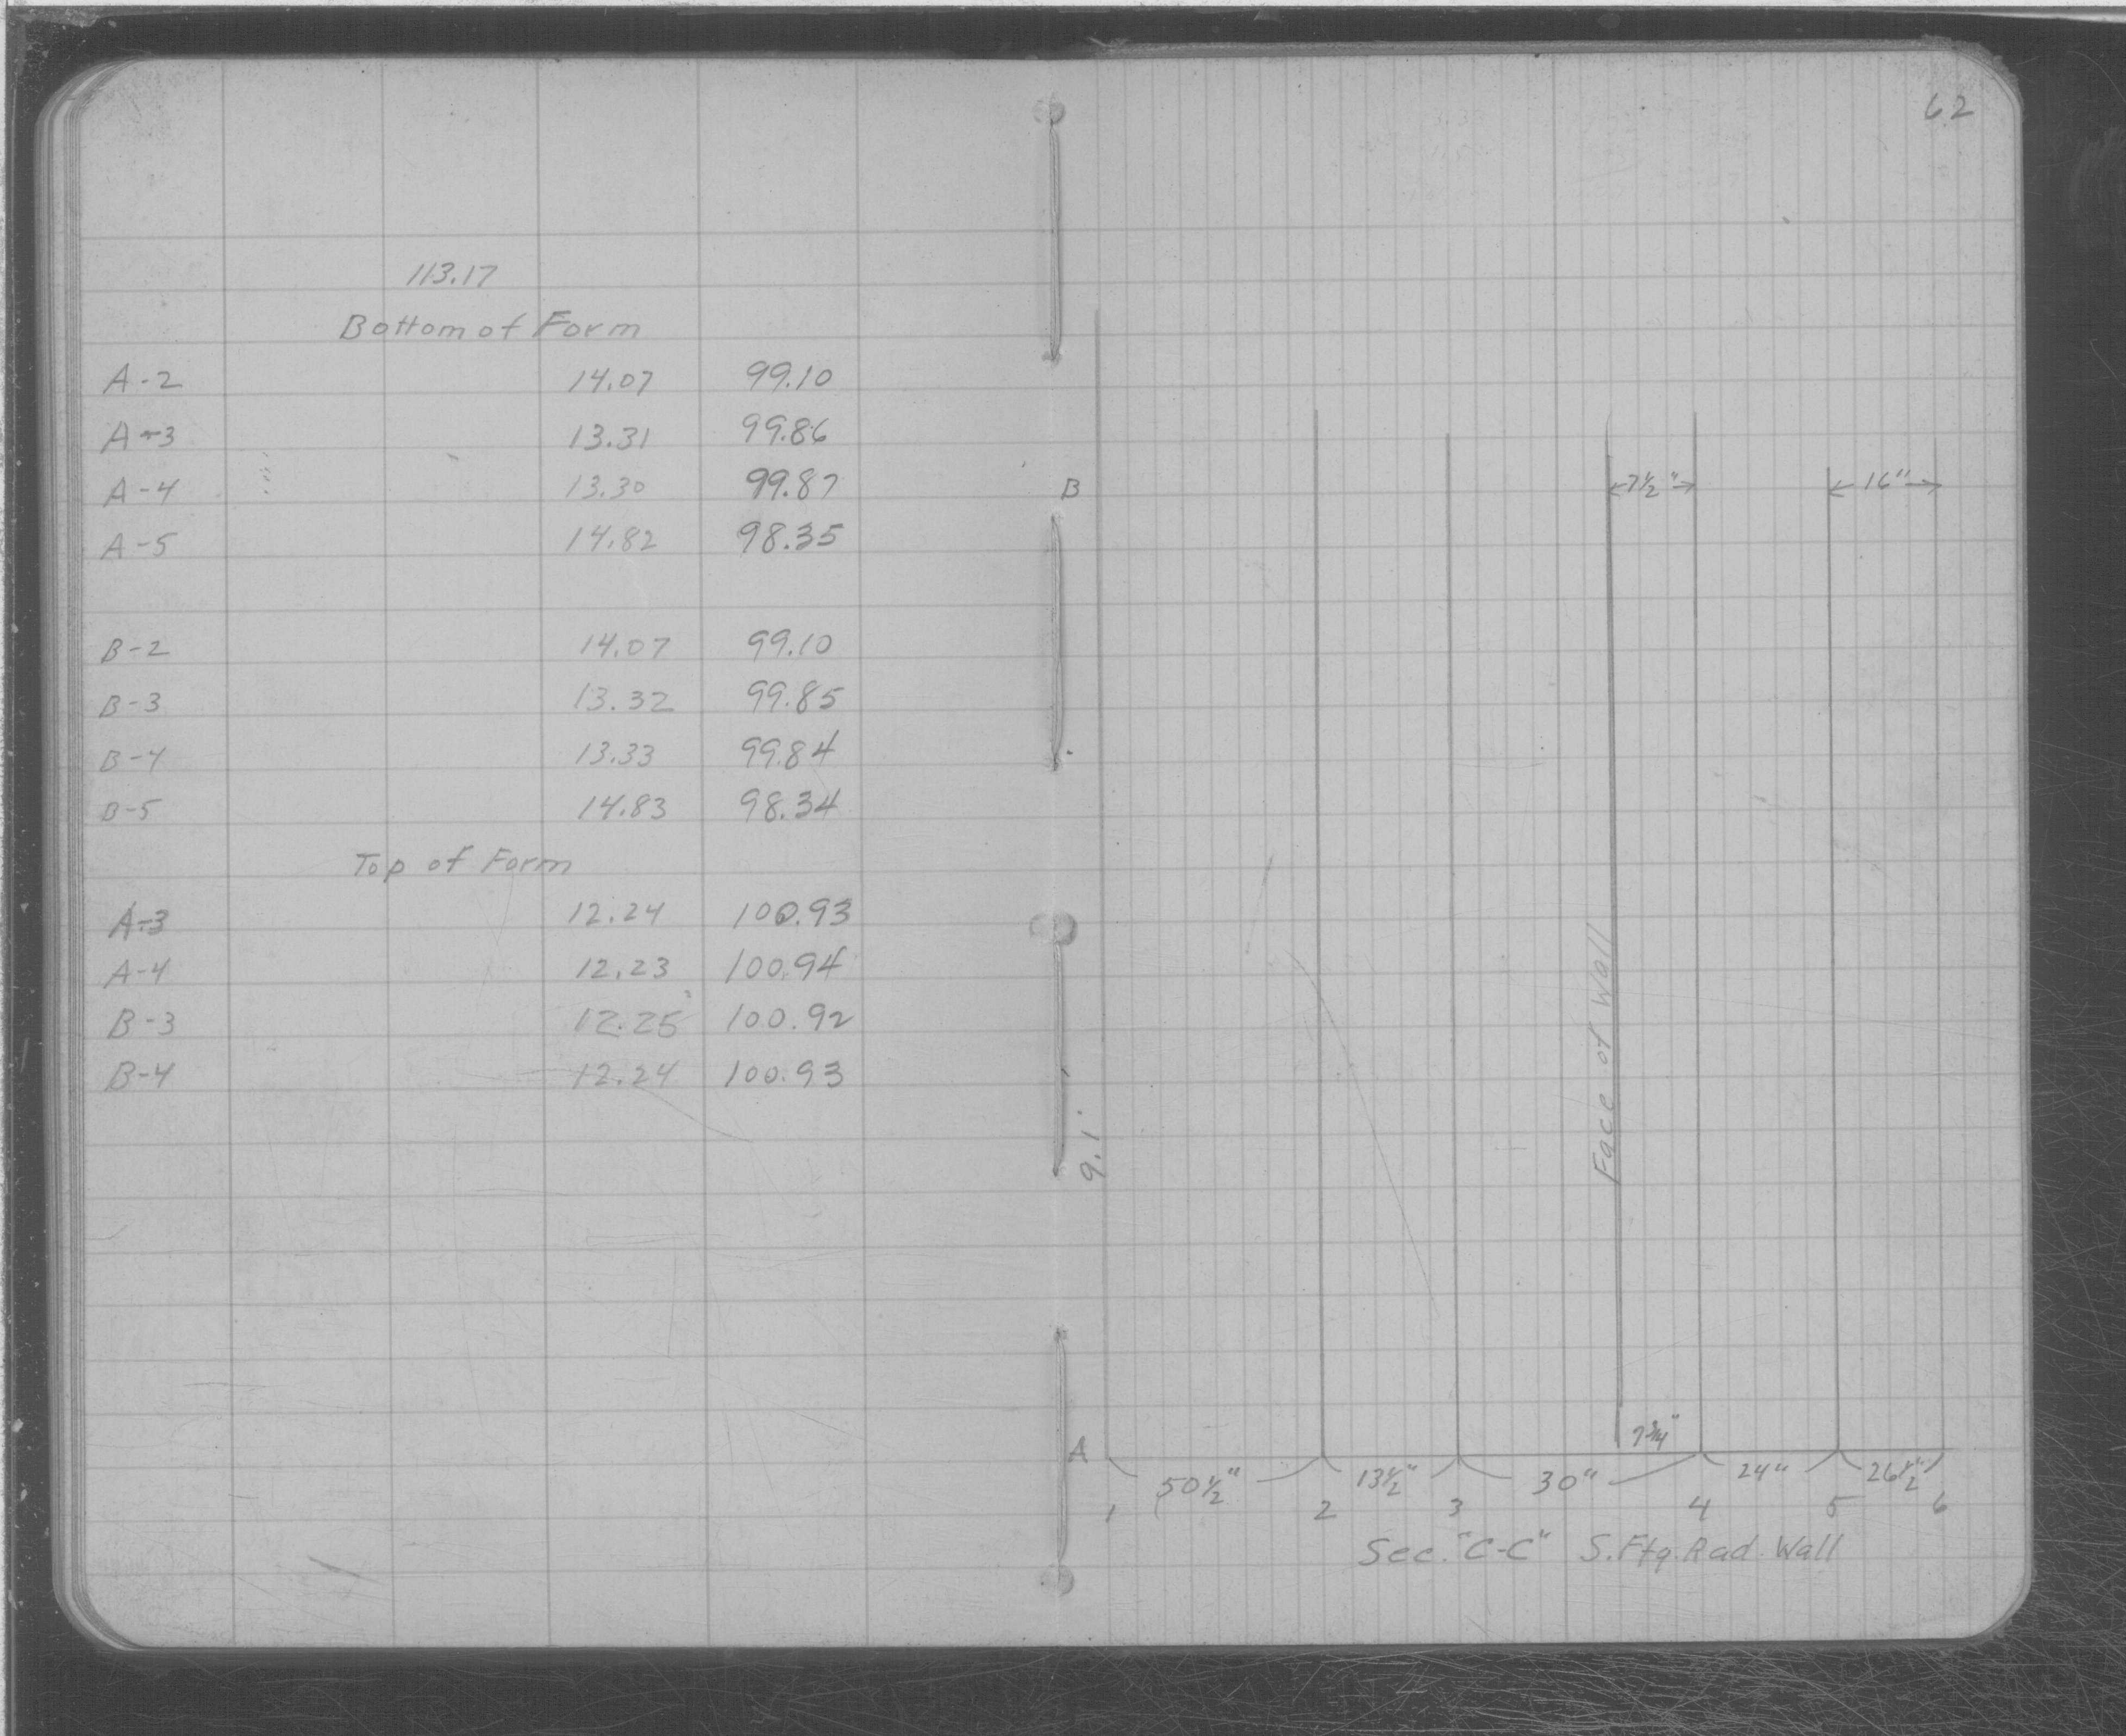 113.17
Bottom of Form
A-2 14.07 99.10
A-3 13.31 99.86
A-4 13.30 99.87
A-5 14.82 98.35
B-2 14.07 99.10
B-3 13.32 99.85
B-4 13.33 99.84
B-5 14.83 98.34
Top of Form
A-3 12.24 100.93
A-4 12.23 100.94
B-3 12.25 100.92
B-4 12.24 100.93
62
B 7½" 16"
Face of Wall
9.1'
A 7¾"
50½" 13½" 30" 24" 26½"
1 2 3 4 5 6
Sec. "C-C" S. Ftg. Rad. Wall